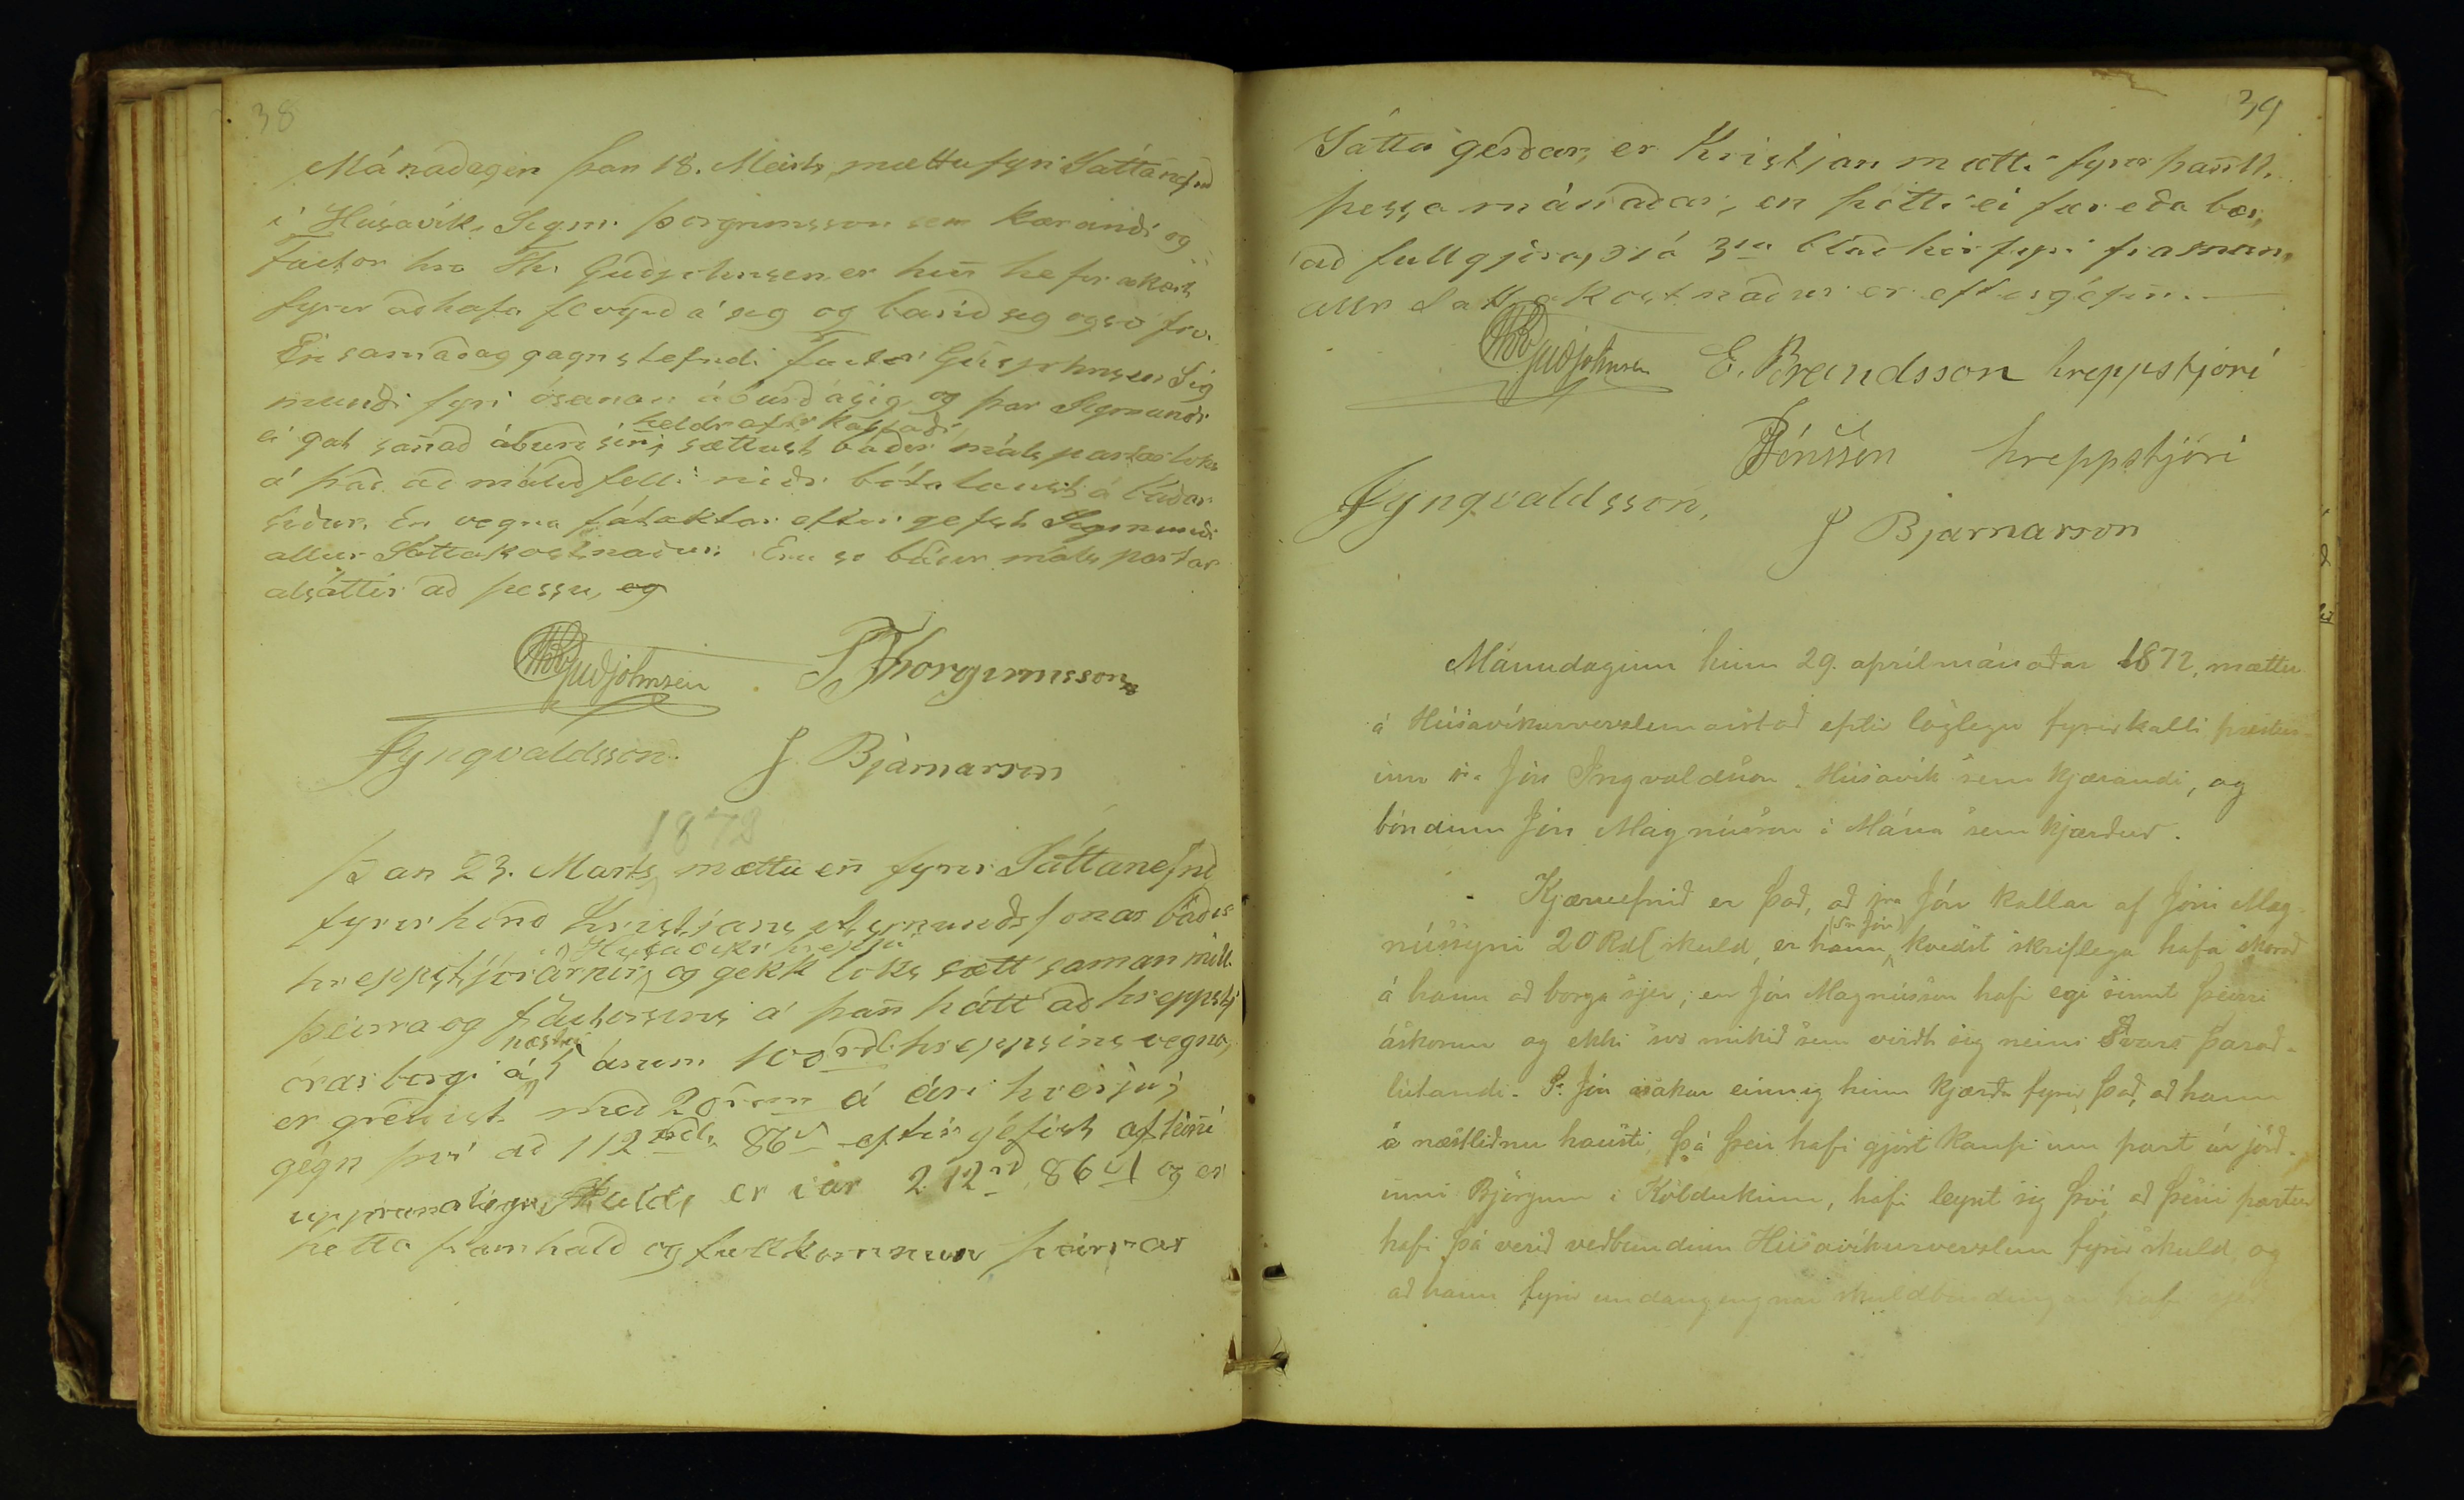 38
Mánadagin þan 18. Marts mættu fyri Sáttanefnd
í Húsavík, Sigm. Þorgrimsson sem kærandi og
Factor hra Th. Guðjohnsen er hin hefir ákært
fyrir að hafa fleygð á sig og barið sig og so frv.
En samadag gagnstefndi Factor Guðjohnsen Sig
mundi fyri ósanan áburð á sig og þar Sigmundr
heldr aftr kallaði,
ei gat sanað áburð sin; sættust báðir málspartar loks
á það að málið felli niðr bótalaust á báðar
síður. En vegna fátæktar eftirgefst Sigmundi
allur Sáttakostnaður. Eru so báður málspartar
alsáttir að þessu, og
ThGuðjohnsen S Thorgrimsson
JYngvaldsson. J Bjarnarson
1872
Þan 23. Marts, mættu en fyrir Sáttanefnd
fyrir hönd Kristjans Asmundssonar báðir
í Husavikr hreppi
hreppstjórarnir, og gekk loks sætt saman milli
þeirra og factorsins á þan hátt að hreppstj
næstu
órar borgi á 5 árum 100 rdl. hreppsins vegna,
er greiðist með 20 rdl á ári hverju;
gégn því að 112 rdl. 86 s eftir géfist af hinni
upprunalegu Skuld, er var 212 rd 86 s og er
þetta framhald og fullkomnun þeirrar
39
Sátta gerðar, er Kristjan mætti fyrir þan 11.
þessa mánaðar, en þótti ei fær eða bær,
að fullgjöra, sjá 3ja blað hér fyri framan,
allr Sáttakostnaður er eftirgéfin.
ThGuðjohnsen E. Brandsson hreppstjóri
PJónsson hreppstjóri
JYngvaldsson,
J Bjarnarson
Mánudaginn hinn 29. aprílmánaðar 1872, mættu
á Húsavíkurverzlunarstað eptir löglegu fyrirkalli prestur-
inn sra Jón Ingvaldsson Húsavík sem kjærandi, og
bóndinn Jón Magnússon í Mána sem kjærður.
Kjæruefnið er það, að sra Jón kallar af Jóni Mag-
(Sr Jón)
nússyni 20 Rdl skuld, er hann kveðst skriflega hafa skorað
á hann að borga sjer; en Jón Magnússon hafi egi sinnt þeirri
áskorun og ekki svo mikið sem virdt sig neins Svars þarað-
lútandi. Sr Jón ásakar einnig hinn kjærða fyrir það, að hann
á næstliðnu hausti, þá þeir hafi gjört kaup um part úr jörð-
inni Björgum í Köldukinn, hafi leynt sig því, að þessi partur
hafi þá verið veðbundinn Húsavíkurverzlun fyrir skuld, og
að hann fyrir undangengnar skuldbindingar hafi